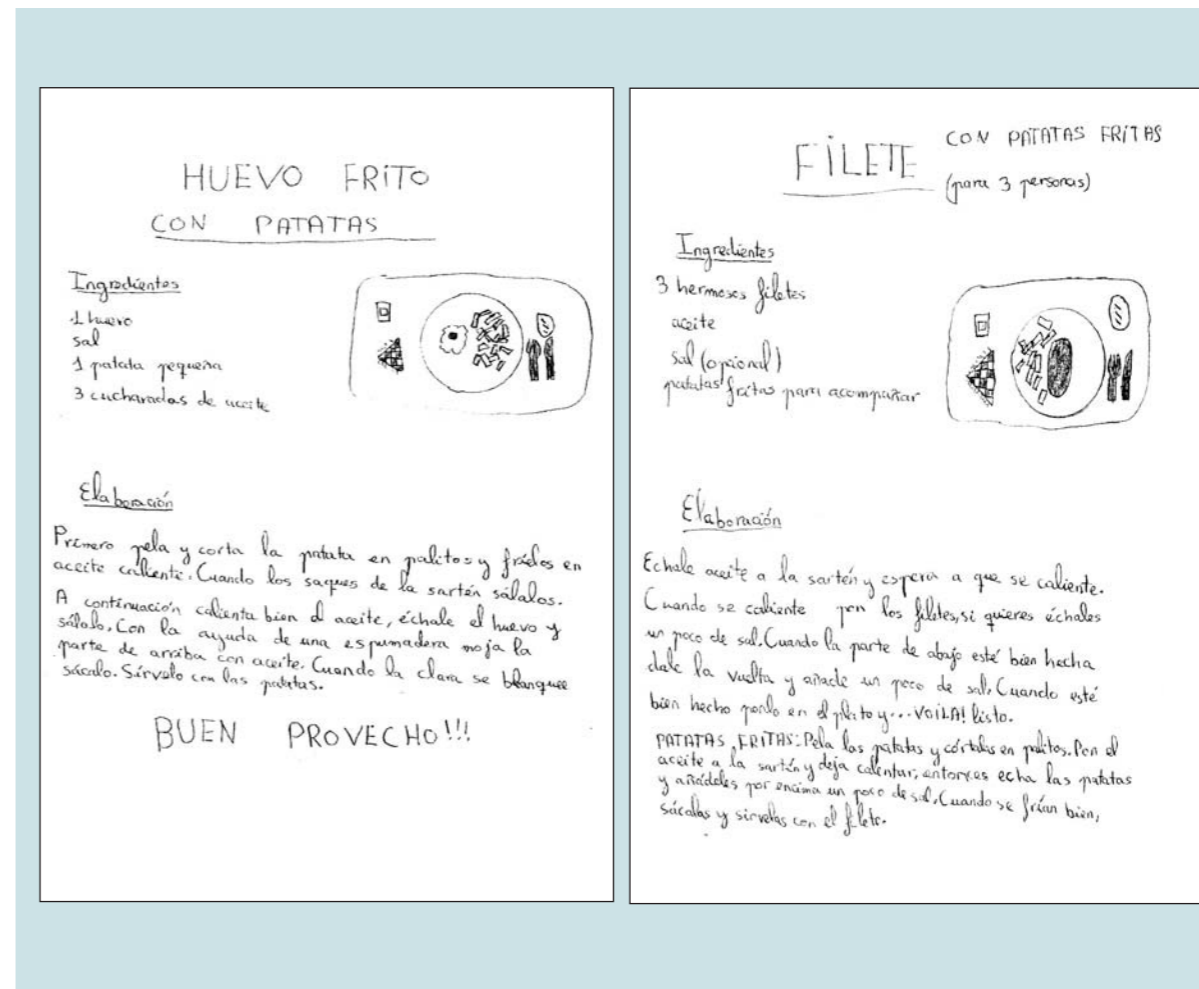 HUEVO FRITO
CON PATATAS
Ingredientes
1 huevo
sal
1 patata pequeña
3 cucharadas de aceite
Elaboración
Primero pela y corta la patata en palitos y fríelos en
aceite caliente. Cuando los saques de la sartén sálalos.
A continuación calienta bien el aceite, échale el huevo y
sálalo. Con la ayuda de una espumadera moja la
parte de arriba con aceite. Cuando la clara se blanquee
sácalo. Sírvelo con las patatas.
BUEN PROVECHO!!!
FILETE CON PATATAS FRITAS
(para 3 personas)
Ingredientes
3 hermosos filetes
aceite
sal (opcional)
patatas fritas para acompañar
Elaboración
Echale aceite a la sartén y espera a que se caliente.
Cuando se caliente pon los filetes, si quieres échales
un poco de sal. Cuando la parte de abajo esté bien hecha
dale la vuelta y añade un poco de sal. Cuando esté
bien hecho ponlo en el plato y... VOILA! listo.
PATATAS FRITAS: Pela las patatas y córtalas en palitos. Pon el
aceite a la sartén y deja calentar, entonces echa las patatas
y añádeles por encima un poco de sal. Cuando se frían bien,
sácalas y sírvelas con el filete.